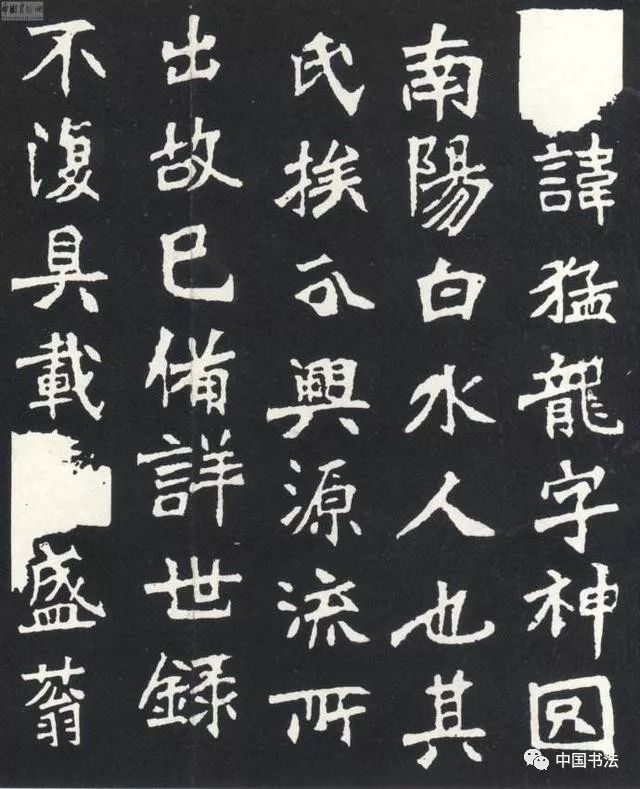 諱猛龍字神囧
南陽白水人也其
氏族分興源流所
出故已備詳世録
不復具載
盛蓊
中国书法